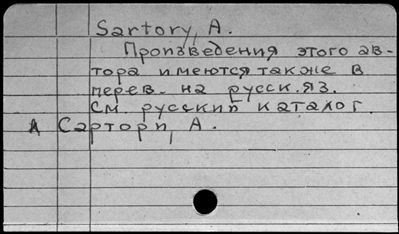 Sartory, A.
Произведения этого ав-
тора имеются также в
перев. на русск. яз.
См. русский каталог.
Сартори, А.